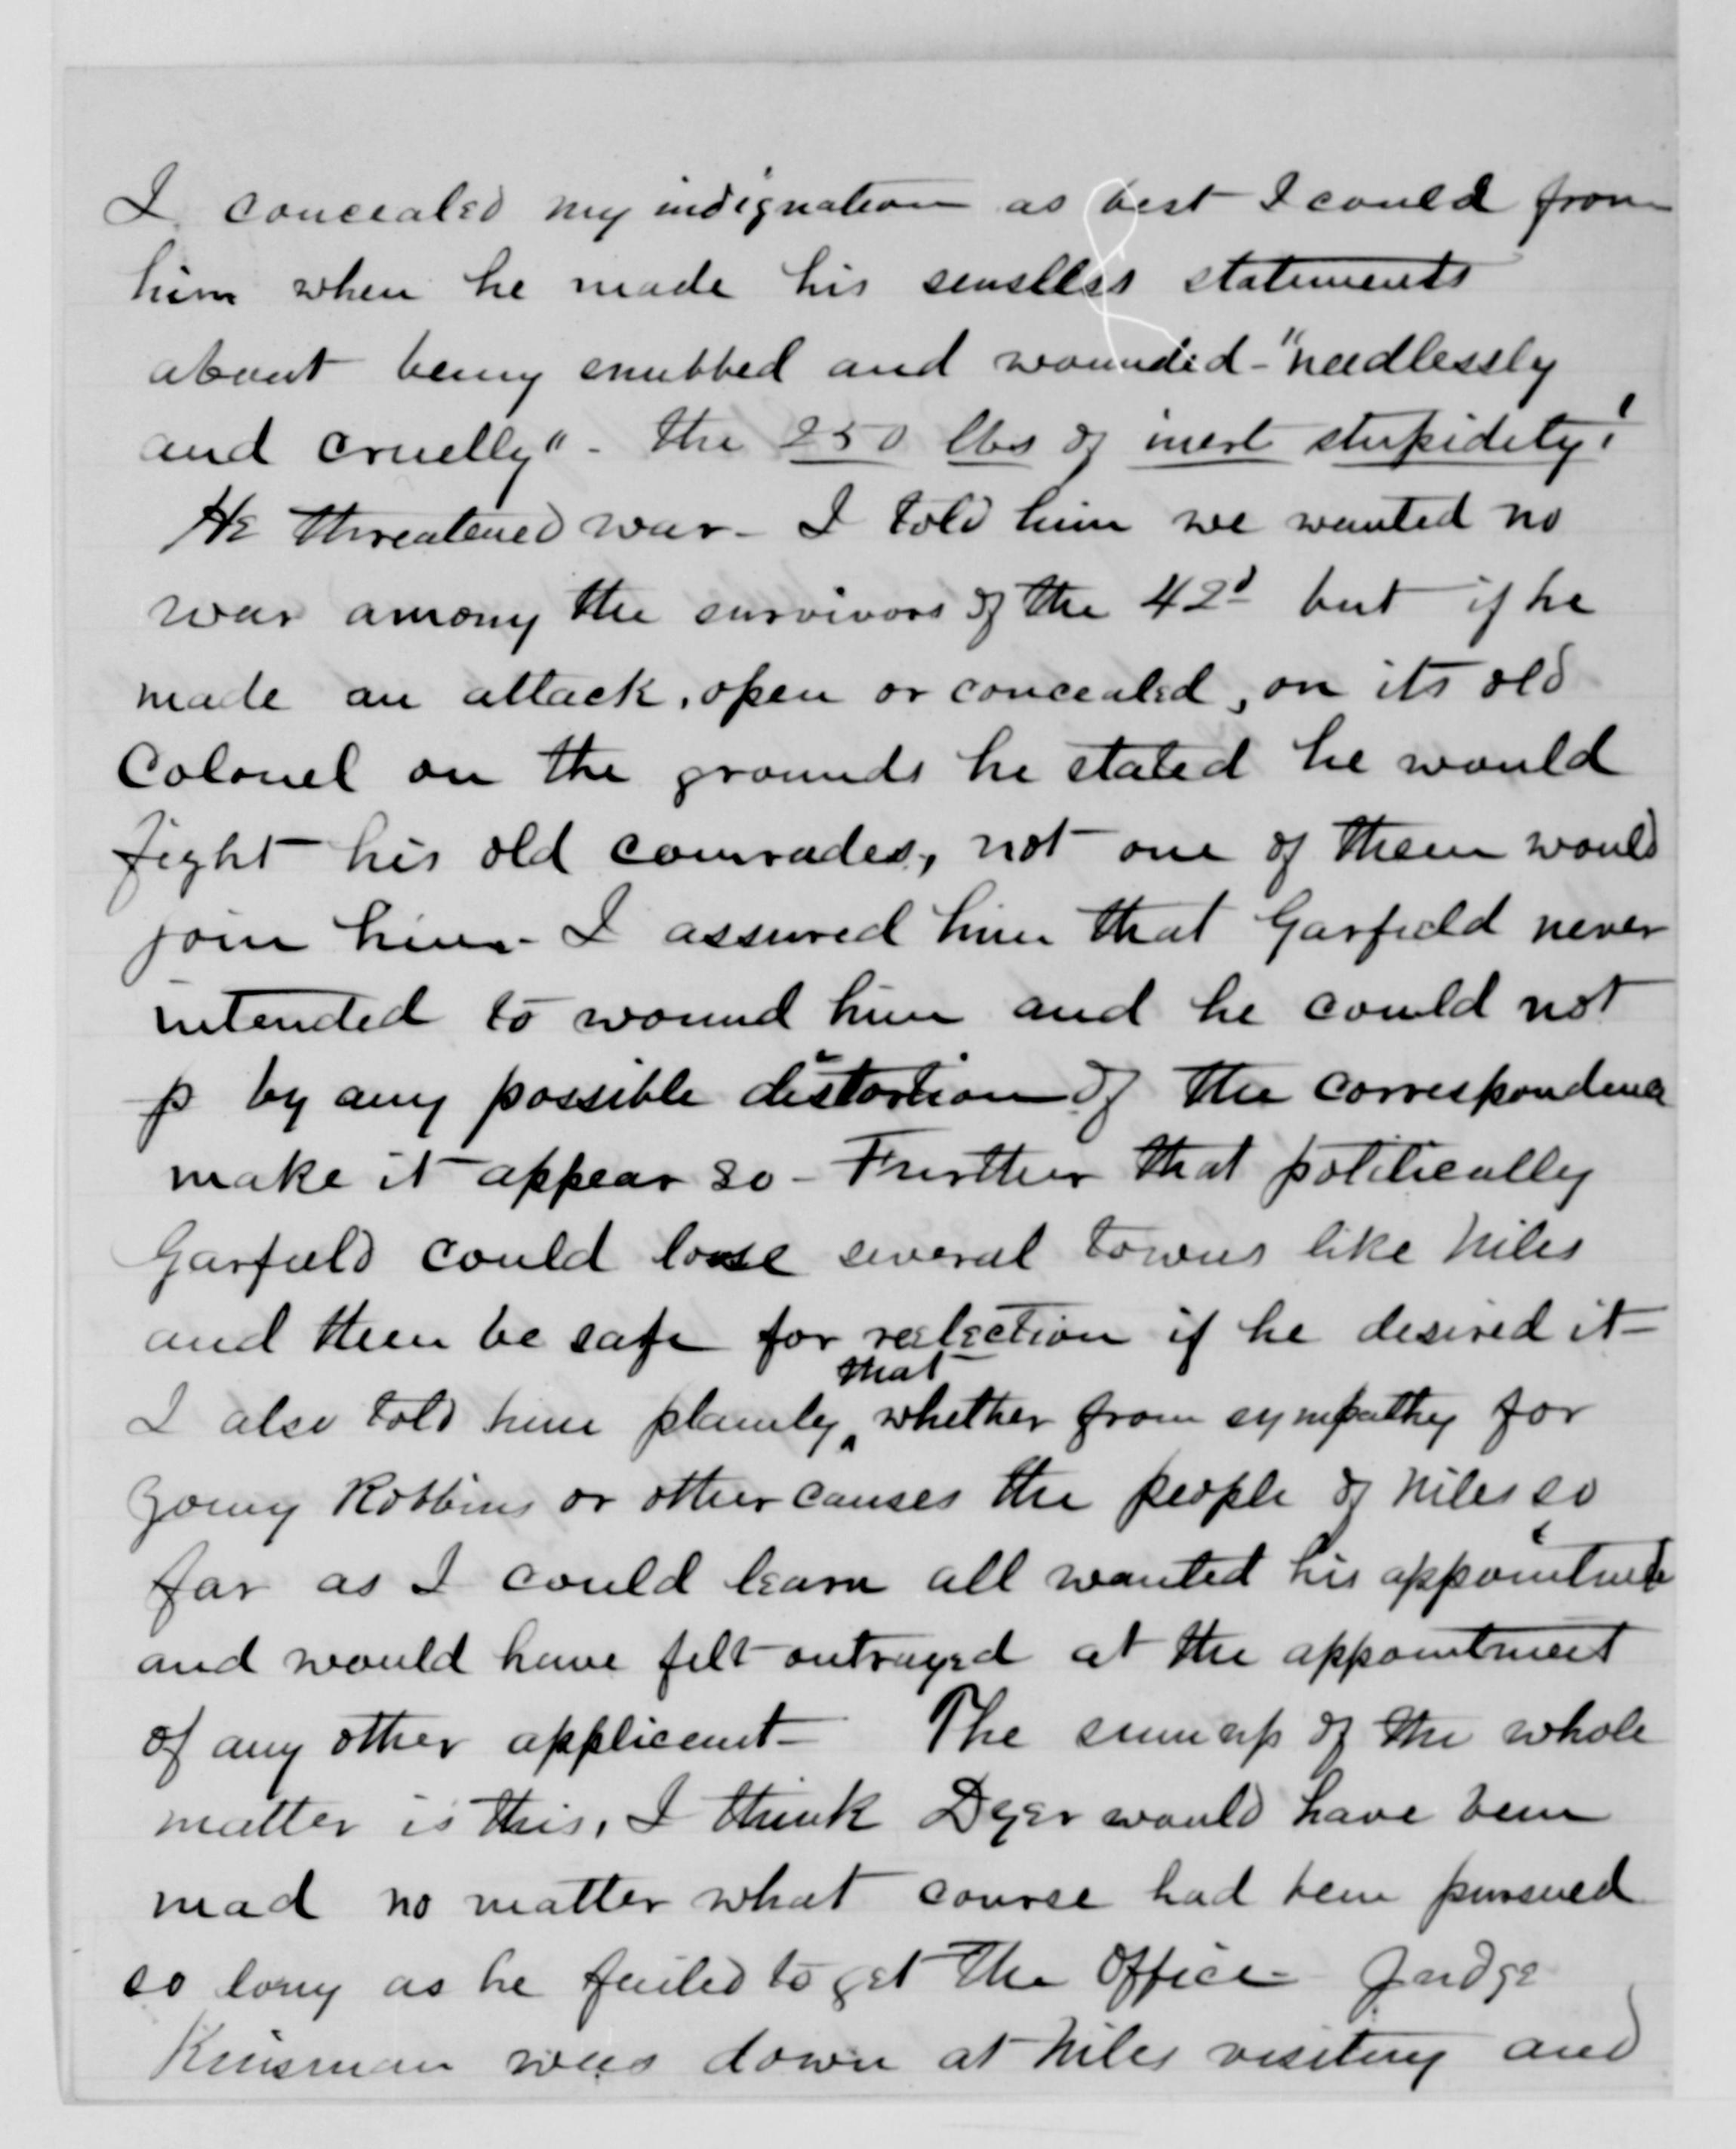 I concealed my indignation as best I could from
him when he made his senseless statements
about being snubbed and wounded - "needlessly
and cruelly" - the 250 lbs of inert stupidity!
He threatened war - I told him we wanted no
war among the survivors of the 42d but if he
made an attack, open or concealed, on its old
Colonel on the grounds he stated he would
fight his old comrades, not one of them would
join him - I assured him that Garfield never
intended to wound him and he could not
p by any possible distortion of the correspondence
make it appear so - Further that politically
Garfield could loose several towns like Niles
and then be safe for reelection if he desired it -
that
I also told him plainly ‸ whether from sympathy for
young Robbins or other causes the people of Niles so
far as I could learn all wanted his appointment
and would have felt outraged at the appointment
of any other applicant - The sum up of the whole
matter is this, I think Dyer would have been
mad no matter what course had been pursued
so long as he failed to get the Office - Judge
Kinsman was down at Niles visiting and